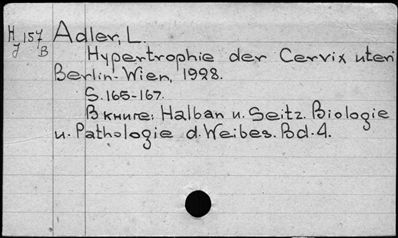 H 157 Adler, L.
J B
Hypertrophie der Cervix uteri
Berlin-Wien, 1928.
S. 165-167.
В книге: Halban u. Seitz. Biologie
u. Pathologie d. Weibes. Bd. 4.